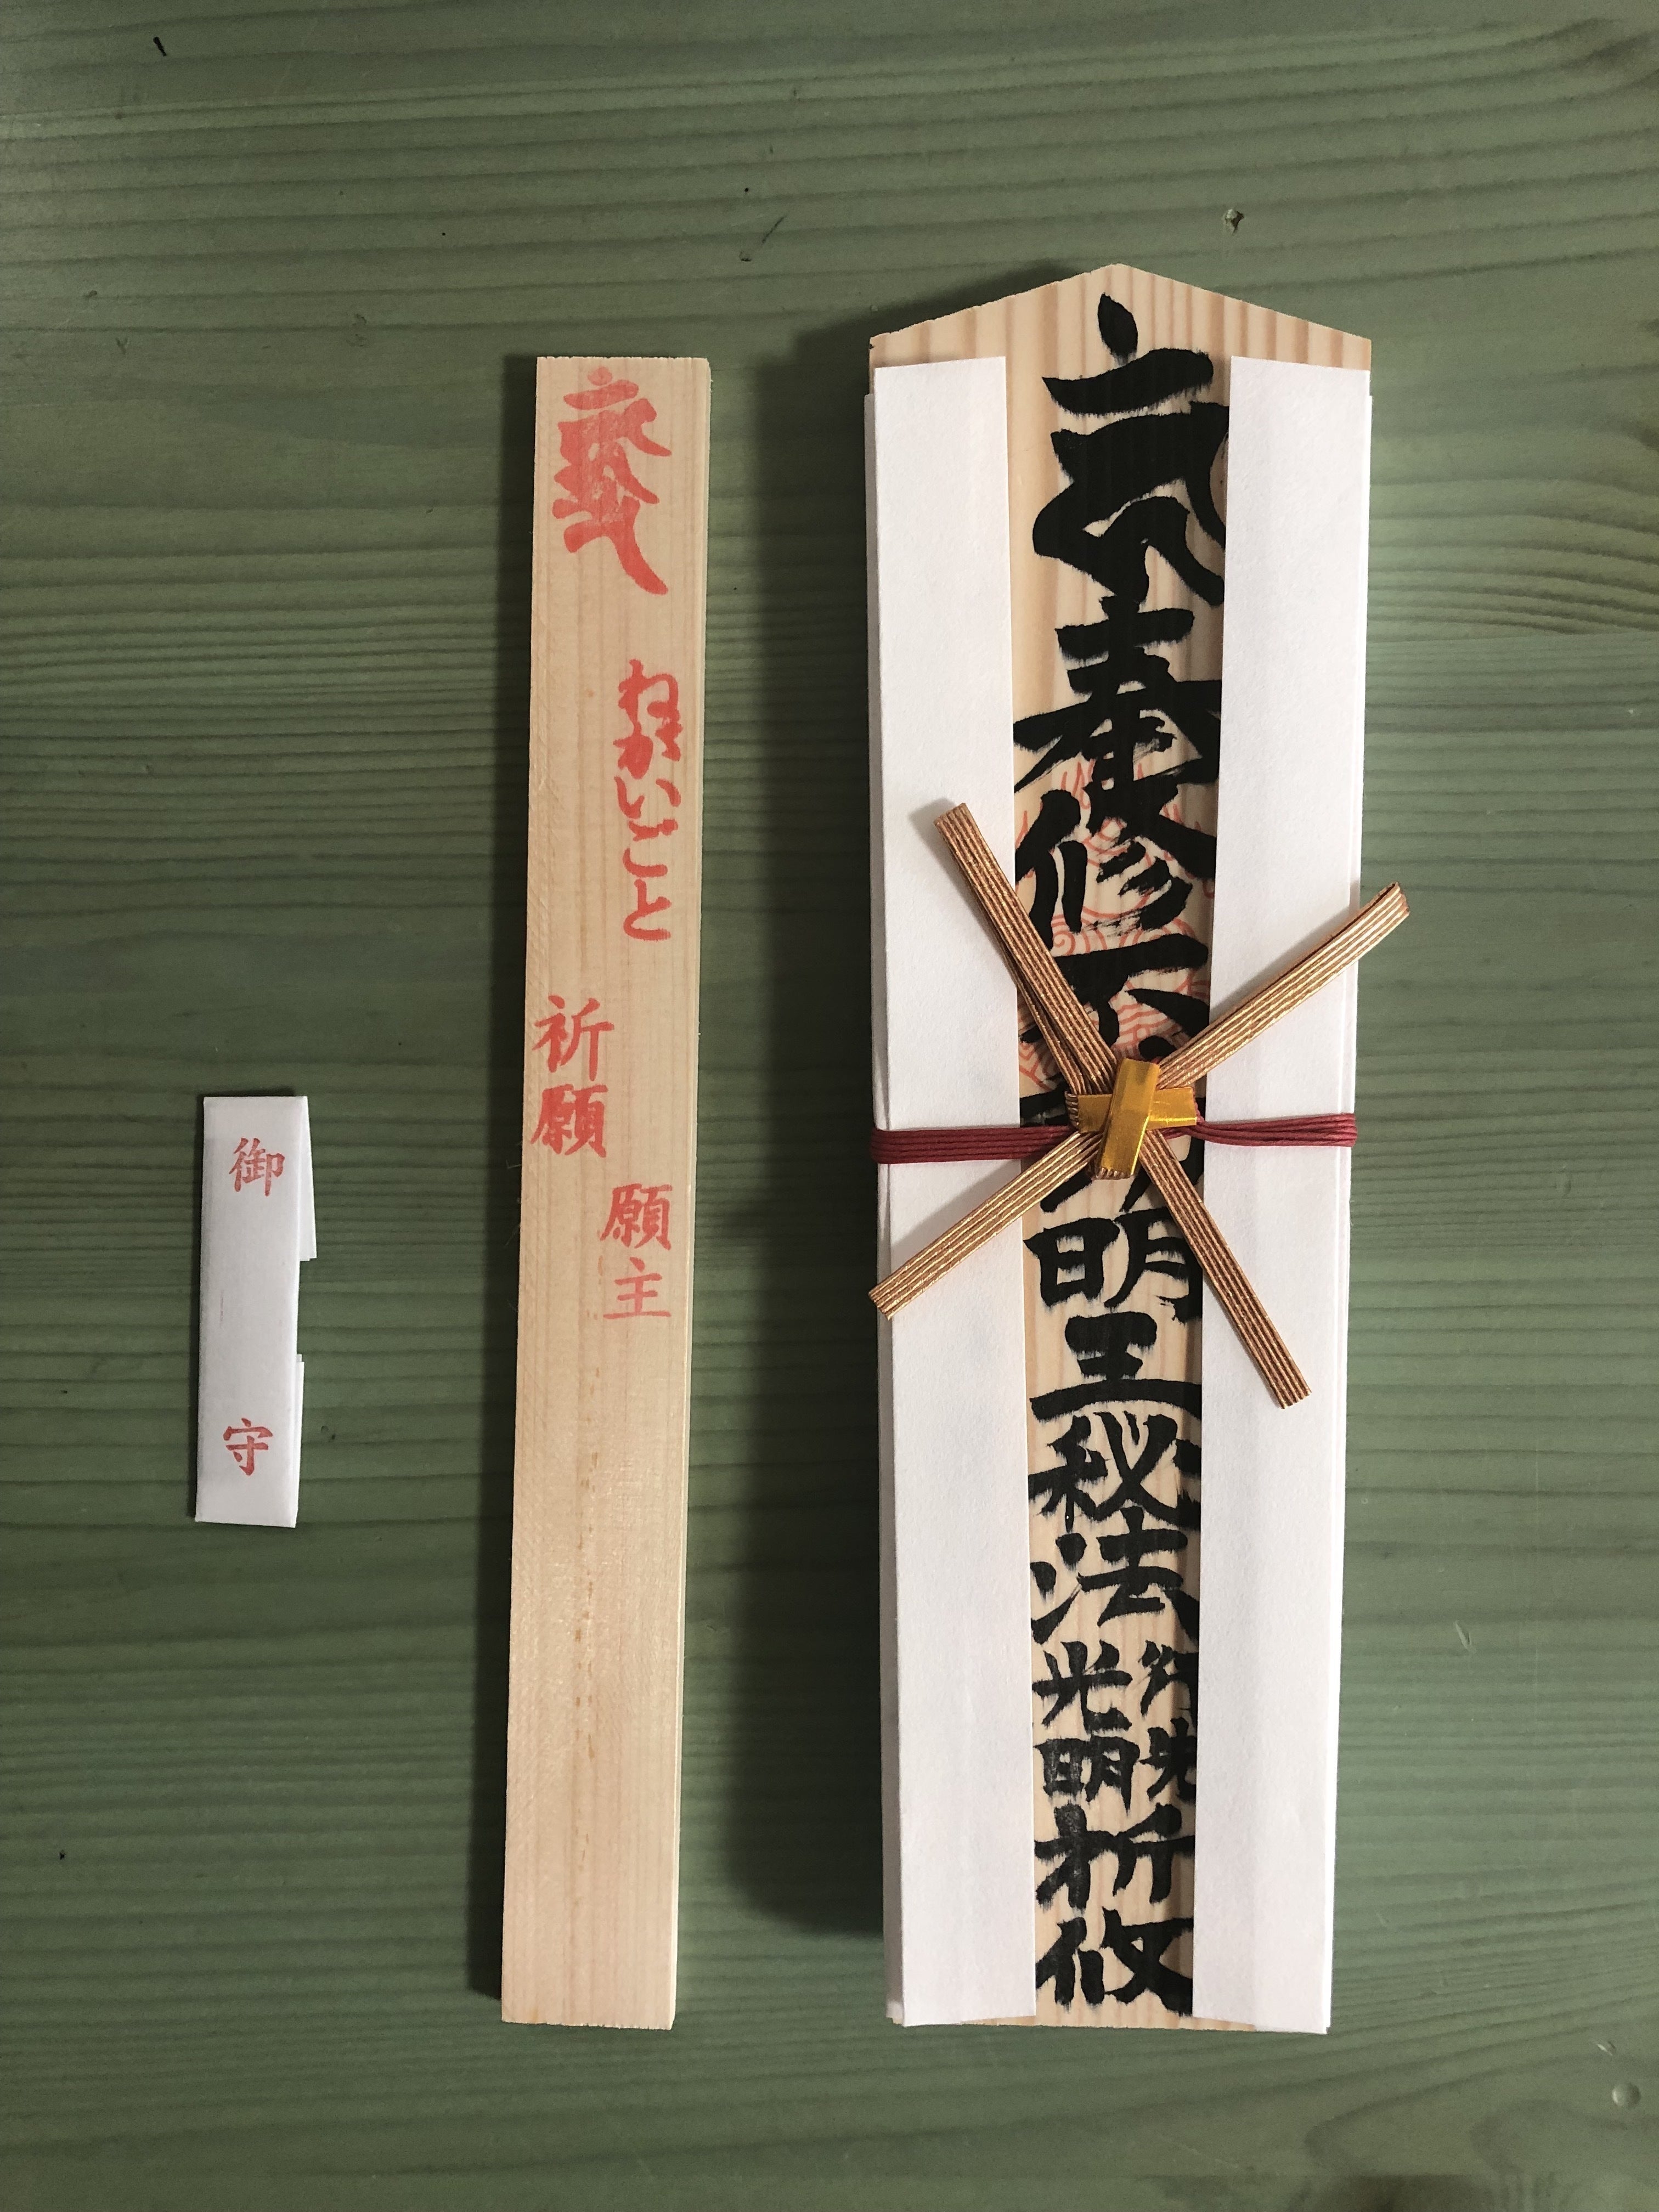 奉修不動明王秘法
光明
祈攸
ねがいごと
祈願
願主
御守